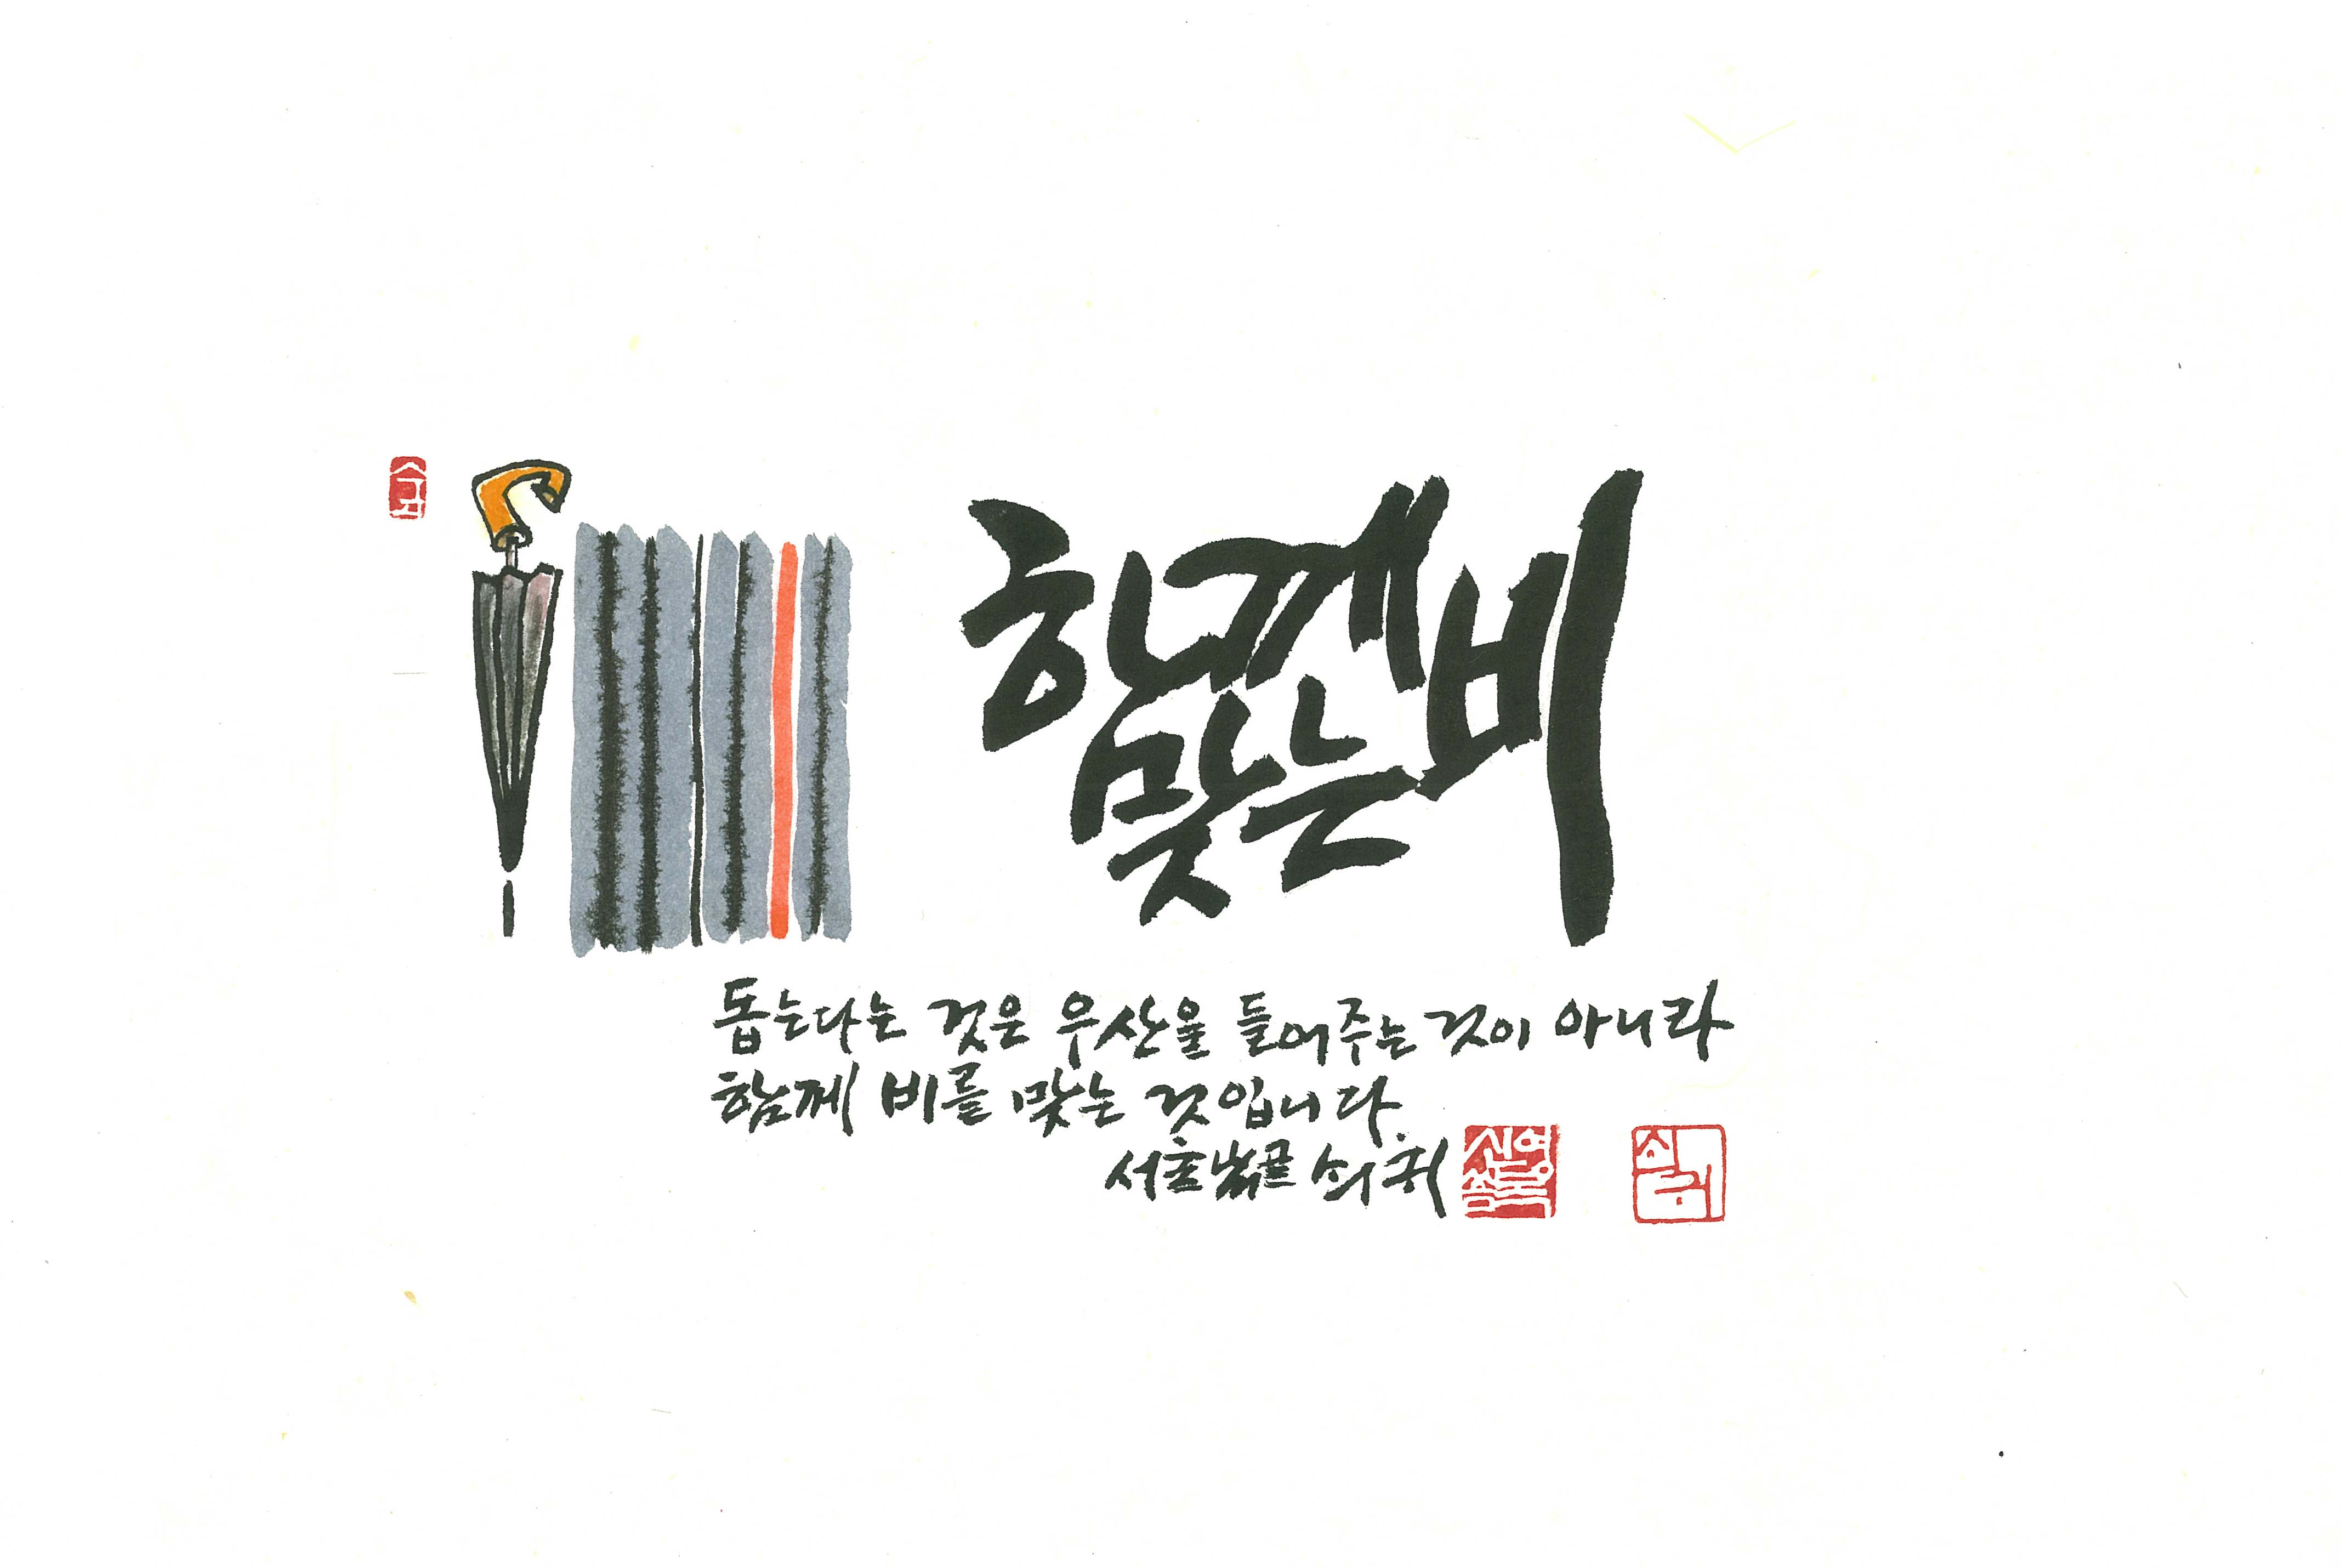 함께 맞는 비
돕는다는 것은 우산을 들어주는 것이 아니라
함께 비를 맞는 것입니다.
신영
쇠귀